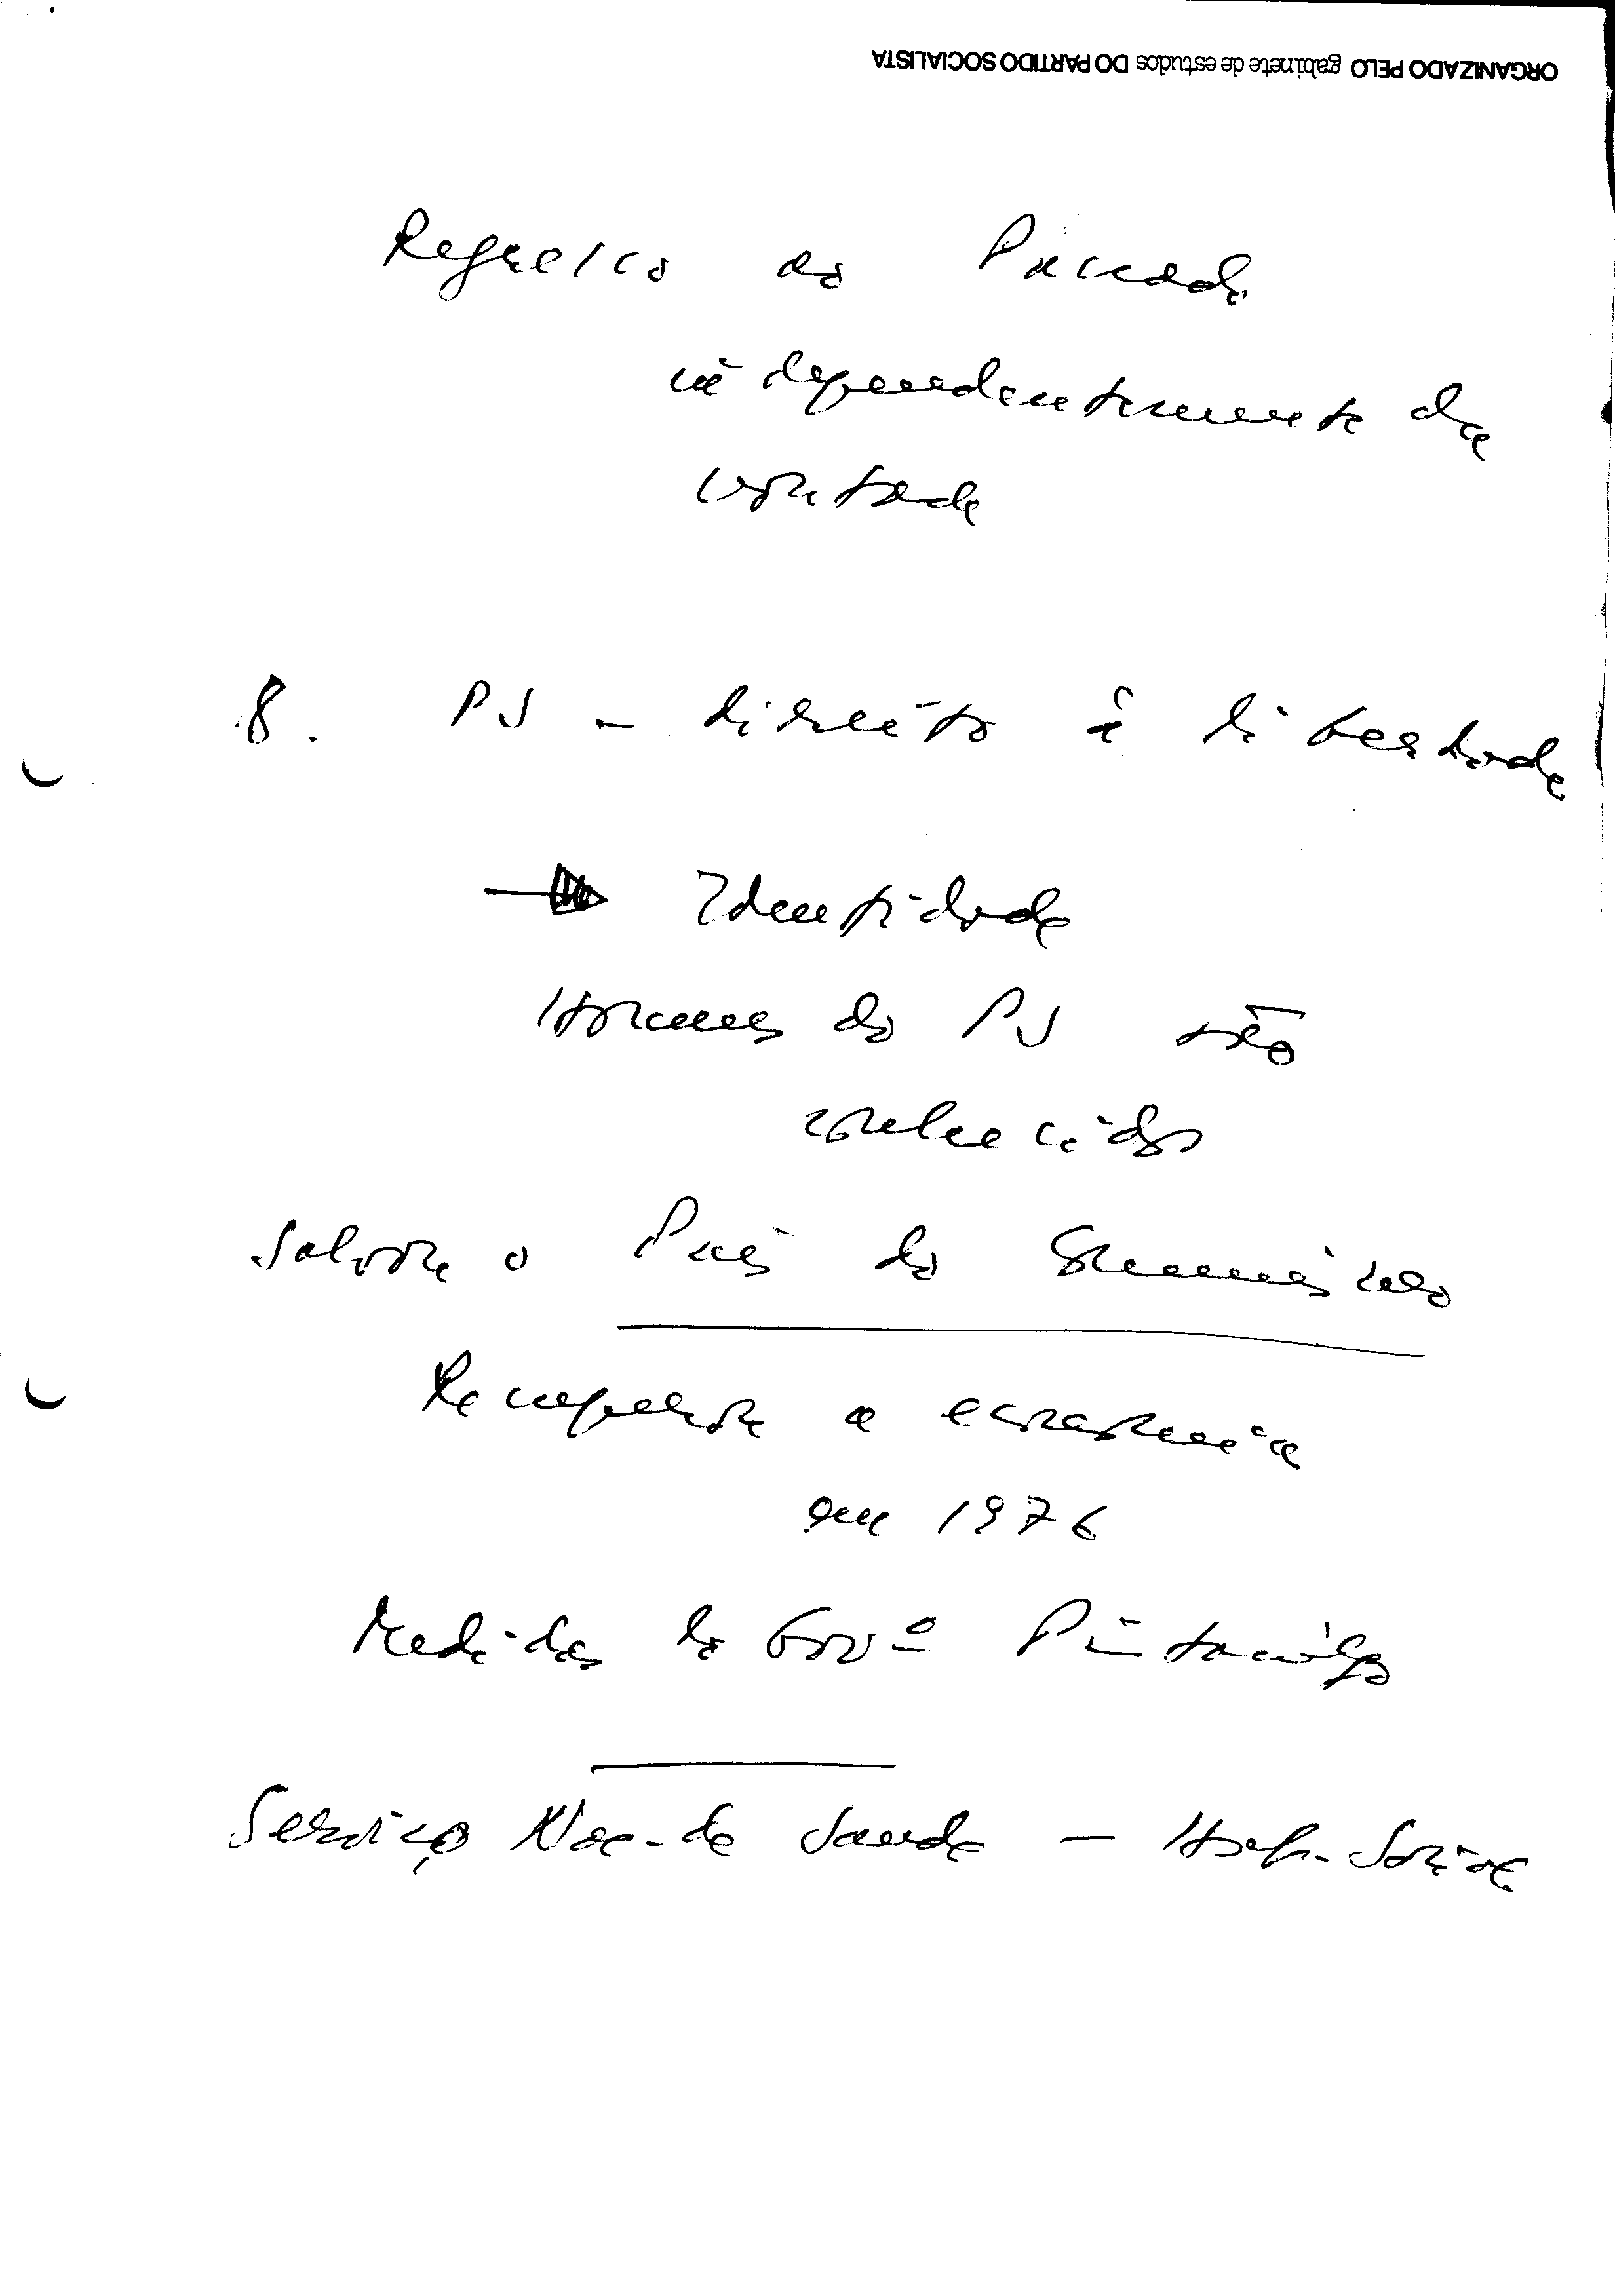 ORGANIZADO PELO gabinete de estudos DO PARTIDO SOCIALISTA
Regresso ao Passado
independentemente da
vontade
8. PS - direito à liberdade
→ Identidade
Homens do PS são
conhecidos
Salvou o País do
Recuperou a economia
em 1976
Medidas do Govº Pintasilgo
Serviço Nac. de Saude -